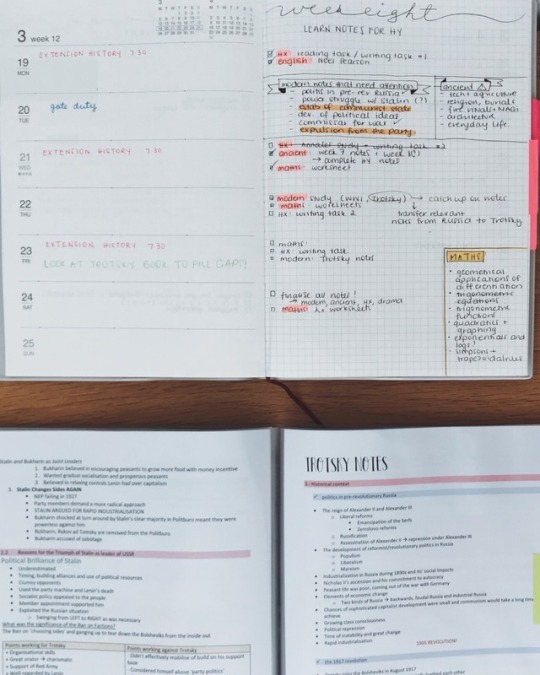 3 week 12
19
MON
EXTENSION HISTORY 7:30
20
TUE
gate duty
21
WED
EXTENSION HISTORY 7:30
22
THU
23
FRI
EXTENSION HISTORY 7:30
LOOK AT TROTSKY BOOK TO FILL GAPS!
24
SAT
25
SUN
week eight
LEARN NOTES FOR HY
HX reading task / writing task #1
english: Noel Pearson
modern notes that need attention
- politics in pre-rev Russia
- power struggle w/ Stalin (?)
- estab of communist state
- dev. of political ideas
- commissar for war
- expulsion from the party
ancient
- tech + agriculture
- religion, burials
- architecture
- everyday life
HX: Annales study + writing task #2
ancient: week 7 notes + week 8!
→ complete AV notes
maths: worksheet
modern study (WWI, Trotsky) → catch up on notes
maths: worksheets
HX: writing task 2
transfer relevant
notes from Russia to Trotsky
maths:
HX: writing task
modern: Trotsky notes
finalise all notes!
→ modern, ancient, HX, drama
maths: worksheets
MATHS
• geometrical
applications of
differentiation
• trigonometric
equations
• trigonometric
functions
• quadratics +
graphing
• exponentials and
logs!
• simpsons +
trapezoidal rules
Stalin and Bukharin as Joint Leaders
1. Bukharin believed in encouraging peasants to grow more food with money incentive
2. Wanted gradual socialisation and prosperous peasants
3. Believed in relaxing controls Lenin had over capitalism
3. Stalin Changes Sides AGAIN
• NEP failing in 1927
• Party members demand a more radical approach
• STALIN ARGUED FOR RAPID INDUSTRIALISATION
• Bukharin shocked at turn around by Stalin's clear majority in Politburo meant they were
powerless against him
• Bukharin, Rykov and Tomsky are removed from the Politburo
• Bukharin accused of sabotage
2.2 Reasons for the Triumph of Stalin as leader of USSR
Political Brilliance of Stalin
• Underestimated
• Timing, building alliances and use of political resources
• Clumsy opponents
• Used the party machine and Lenin's death
• Socialist policy appealed to the people
• Member appointment supported him
• Exploited the Russian situation
o Swinging from LEFT to RIGHT as was necessary
What was the significance of the Ban on Factions?
The Ban on 'choosing sides' and ganging up to tear down the Bolsheviks from the inside out
Points working for Trotsky
• Organisational skills
• Great orator → charismatic
• Support of Red Army
• Well regarded by Lenin
Points working against Trotsky
- Didn't effectively mobilise or build on his support
base
- Considered himself above 'party politics'
TROTSKY NOTES
1 - Historical context
politics in pre-revolutionary Russia
• The reign of Alexander II and Alexander III
o Liberal reforms
• Emancipation of the Serfs
• Zemstvos reforms
o Russification
o Assassination of Alexander II → repression under Alexander III
• The development of reformist/revolutionary politics in Russia
o Populism
o Liberalism
o Marxism
• Industrialisation in Russia during 1890s and its' social impacts
• Nicholas II's ascension and his commitment to autocracy
• Peasant life was poor, coming out of the war with Germany
• Elements of economic change
o Two kinds of Russia → backwards, feudal Russia and industrial Russia
• Chances of sophisticated capitalist development were small and communism would take a long time
achieve
• Growing class consciousness
• Political repression
• Time of instability and great change
• Rapid industrialisation
1905 REVOLUTION!
the 1917 revolution